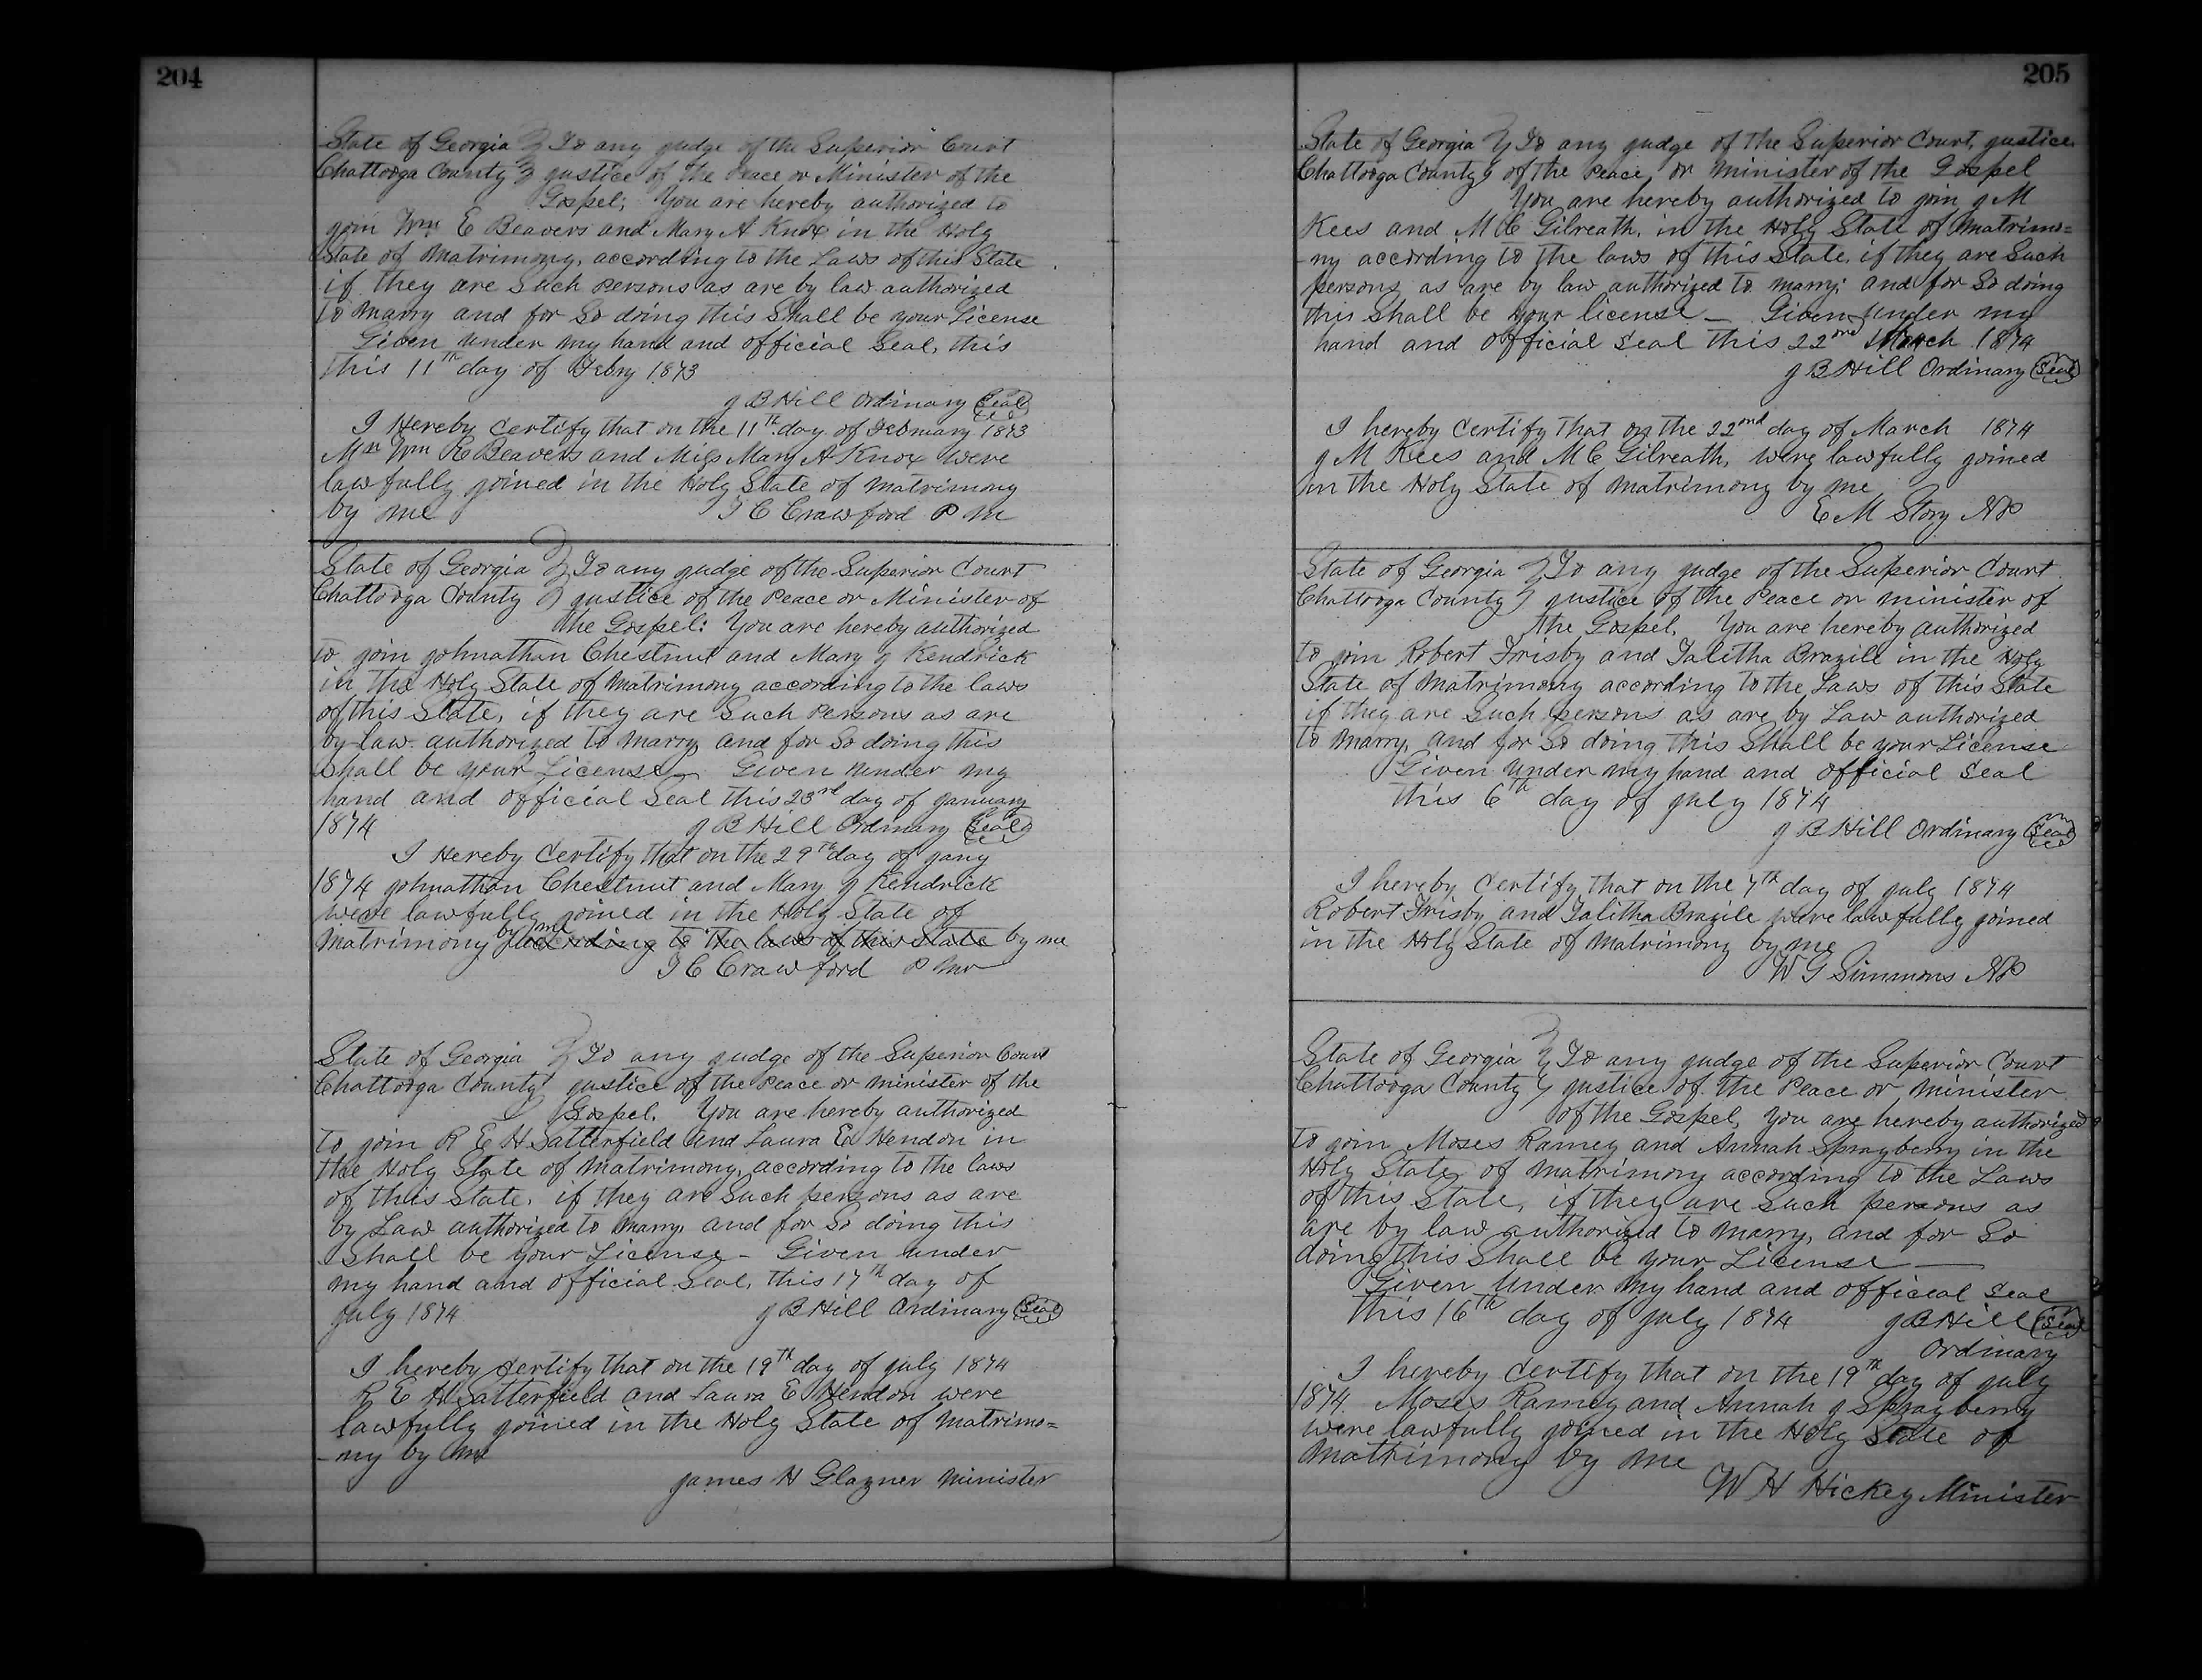 204
State of Georgia } To any Judge of the Superior Court
Chattooga County } Justice of the Peace or Minister of the
Gospel; You are hereby authorized to
join Wm E Beavers and Mary A Knox in the Holy
State of Matrimony, according to the Laws of this State
if they are Such persons as are by law authorized
to marry and for So doing this Shall be your License
Given under my hand and official Seal, this
this 11th day of Febry 1873
J B Hill Ordinary (Seal)
I Hereby Certify that on the 11th day of February 1873
Mr Wm R Beavers and Miss Mary A Knox were
lawfully joined in the Holy State of Matrimony
by me T C Crawford P M
State of Georgia } To any Judge of the Superior Court
Chattooga County } Justice of the Peace or Minister of
the Gospel: You are hereby authorized
to join Johnathan Chestnut and Mary J Kendrick
in the Holy State of Matrimony according to the laws
of this State, if they are Such persons as are
by law authorized to marry and for So doing this
Shall be your License Given under my
hand and official Seal this 23rd day of January
1874 J B Hill Ordinary (Seal)
I Hereby Certify that on the 29th day of Jany
1874 Johnathan Chestnut and Mary J Kendrick
were lawfully joined in the Holy State of
Matrimony by me according to the laws of this State by me
T C Crawford P Mr
State of Georgia } To any Judge of the Superior Court
Chattooga County } Justice of the Peace or minister of the
Gospel. You are hereby authorized
to join R E H Satterfield and Laura E Hendon in
the Holy State of Matrimony, according to the laws
of this State, if they are Such persons as are
by Law authorized to marry, and for So doing this
Shall be your License - Given under
my hand and official Seal, this 17th day of
July 1874 J B Hill Ordinary (Seal)
I hereby Certify that on the 19th day of July 1874
R E H Satterfield and Laura E Hendon were
lawfully joined in the Holy State of Matrimo=
-ny by me
James H Glazner Minister
205
State of Georgia } To any Judge of the Superior Court, Justice
Chattooga County } of the Peace, or Minister of the Gospel
You are hereby authorized to join J M
Kees and M C Gilreath, in the Holy State of Matrimo=
-ny according to the laws of this State, if they are Such
persons as are by law authorized to marry; and for So doing
this Shall be your license — Given under my
hand and official Seal this 22nd March 1874
J B Hill Ordinary (Seal)
I hereby Certify that on the 22nd day of March 1874
J M Kees and M C Gilreath, were lawfully joined
in the Holy State of Matrimony by me
E M Story NP
State of Georgia } To any Judge of the Superior Court
Chattooga County } Justice of the Peace or minister of
the Gospel. You are hereby authorized
to join Robert Frisby and Talitha Brazile in the Holy
State of Matrimony according to the Laws of this State
if they are Such persons as are by Law authorized
to marry, and for So doing this Shall be your License
Given under my hand and official Seal
this 6th day of July 1874
J B Hill Ordinary (Seal)
I hereby Certify that on the 7th day of July 1874
Robert Frisby and Talitha Brazile were lawfully joined
in the Holy State of Matrimony by me
W G Simmons NP
State of Georgia } To any Judge of the Superior Court
Chattooga County } Justice of the Peace or minister
of the Gospel, You are hereby authorized
to join Moses Ramey and Annah Sprayberry in the
Holy State of Matrimony according to the Laws
of this State, if they are Such persons as
are by law authorized to marry, and for So
doing this Shall be your License —
Given under my hand and official Seal
this 16th day of July 1874 J B Hill (Seal)
Ordinary
I hereby Certify that on the 19th day of July
1874. Moses Ramey and Annah J Sprayberry
were lawfully joined in the Holy State of
Matrimony by me
W H Hickey Minister